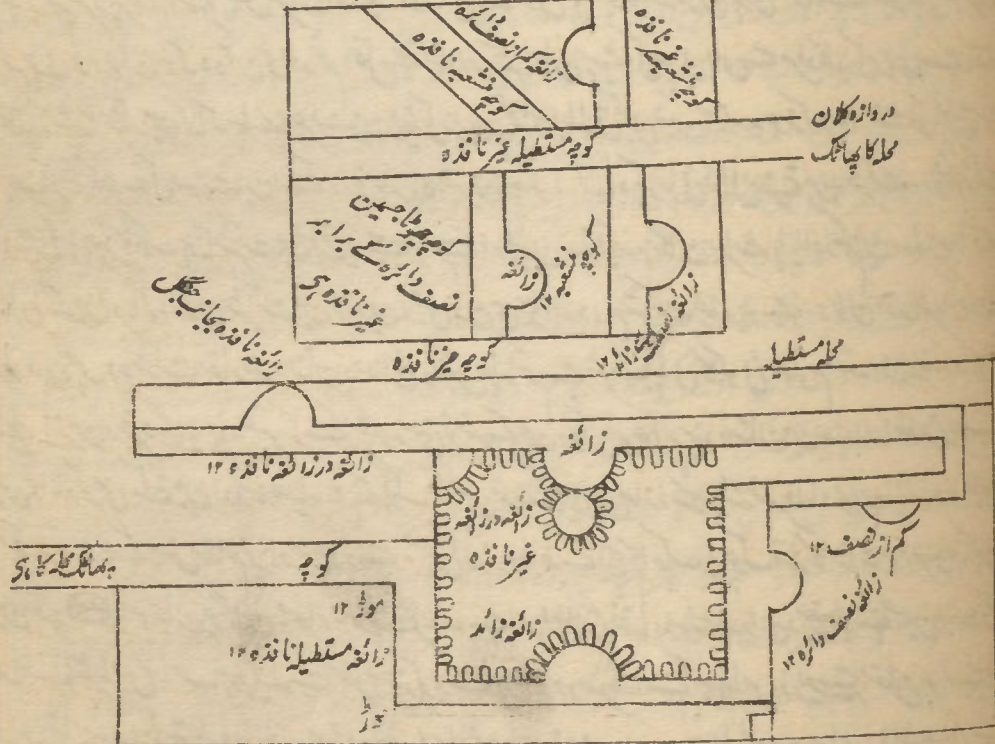 زائغہ کم از نصف دائرہ
کوچہ منشعبہ نافذہ
کوچہ منشعبہ غیر نافذہ
دروازہ کلان
محلہ کا پھاٹک
کوچہ مستطیلہ غیر نافذہ
کوچہ چوڑا جسمین
نصف دائرہ سے برابر
غیر نافذہ ہی
زائغہ
کوچہ منشعبہ ۱۲
زائغہ نصف دائرہ سے زائد ۱۲
کوچہ غیر نافذہ
محلہ مستطیلہ
زائغہ نافذہ بجانب جنگل
زائغہ در زائغہ نافذہ ۱۲
زائغہ
زائغہ در زائغہ
غیر نافذہ
زائغہ زائد
کم از نصف ۱۲
زائغہ نصف دائرہ ۱۲
پھاٹک محلہ کا ہی
کوچہ
موڑ ۱۲
زائغہ مستطیلہ نافذہ ۱۲
موڑ